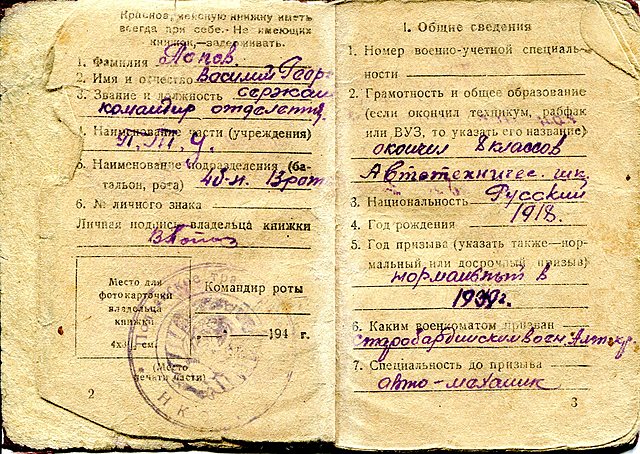 Красноармейскую книжку иметь
всегда при себе. Не имеющих
книжек—задерживать.
1. Фамилия Попов.
2. Имя и отчество Василий Геор
3. Звание и должность сержан
командир отделения
4. Наименование части (учреждения)
П. Т. Д.
5. Наименование подразделения (ба-
тальон, рота) 4 б-н. 13 рота
6. № личного знака
Личная подпись владельца книжки
ВПопов
Место для
фотокарточки
владельца
книжки
4× см.
(Место
печати части)
Командир роты
194 г.
НК
2
I. Общие сведения
1. Номер военно-учетной специаль-
ности
2. Грамотность и общее образование
(если окончил техникум, рабфак
или ВУЗ, то указать его название)
окончил 8 классов
Автотехничес. шк.
3. Национальность Русский
4. Год рождения 1918.
5. Год призыва (указать также—нор-
мальный или досрочный призыв)
нормальный в
1939г.
6. Каким военкоматом призван
Старобардинский воен. Алт. кр.
7. Специальность до призыва
авто-механик
3